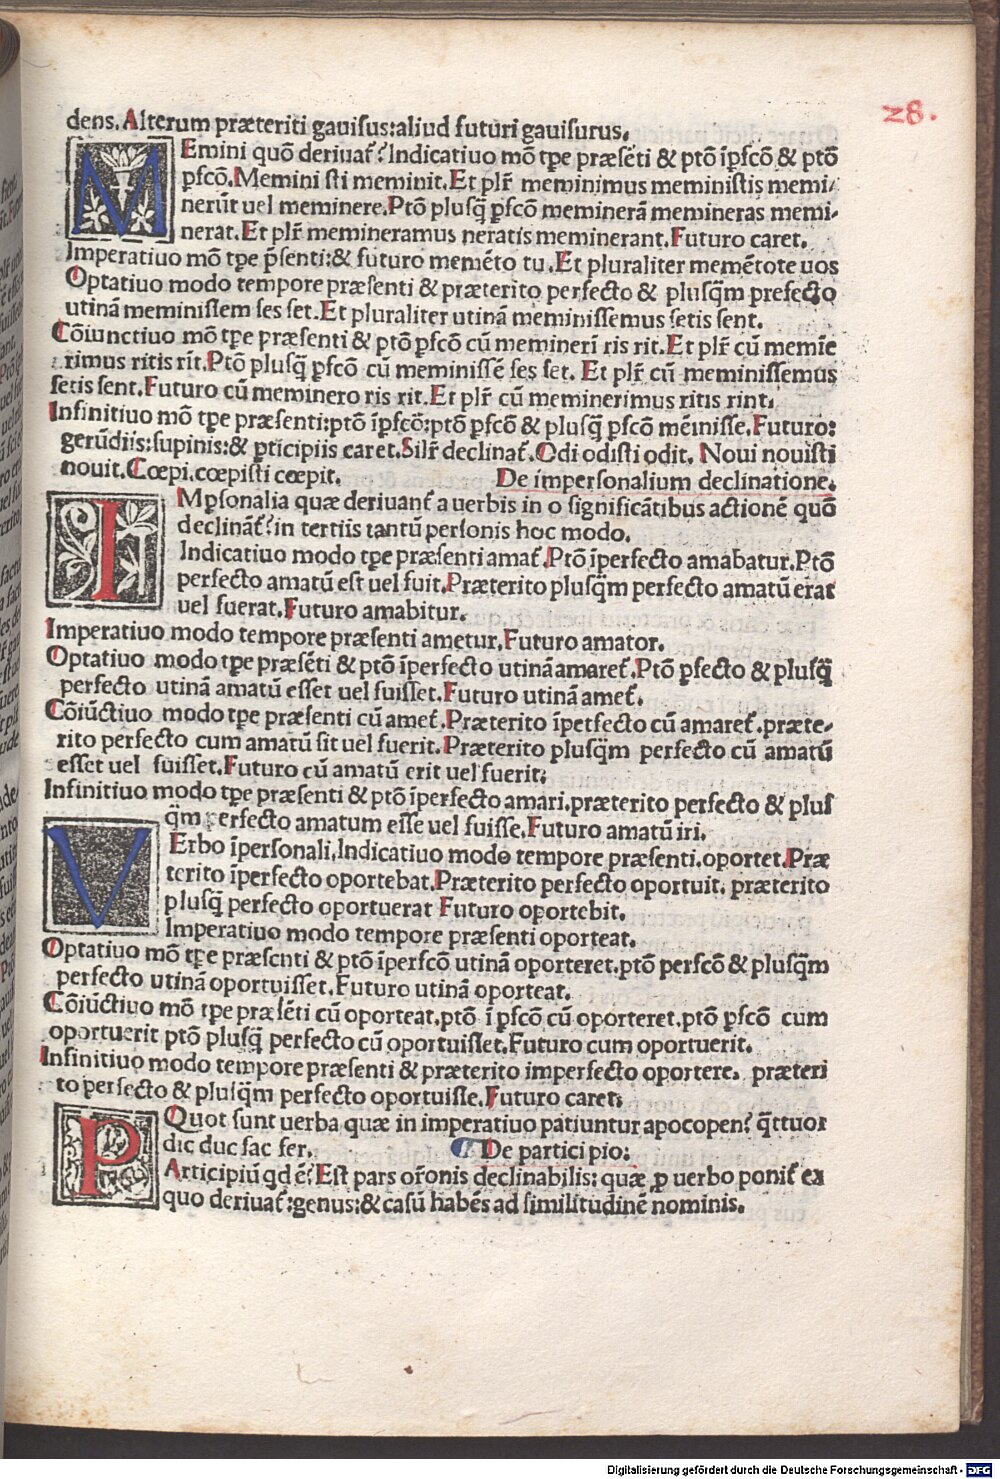 28.
dens. Alterum præteriti gauisus: aliud futuri gauisurus.
MEmini quō deriuat̄? Indicatiuo mō tp̄e præsēti & ptō īp̄fcō & ptō
p̄fcō. Memini sti meminit. Et plr̄ meminimus meministis memi/
nerūt uel meminere. Ptō plusq̄ p̄fcō meminerā memineras memi-
nerat. Et plr̄ memineramus neratis meminerant. Futuro caret.
Imperatiuo mō tp̄e p̄senti: & futuro memēto tu. Et pluraliter memētote uos
Optatiuo modo tempore præsenti & præterito perfecto & plusq̄m prefecto
utinā meminissem ses set. Et pluraliter utinā meminissemus setis sent.
Cōiunctiuo mō tp̄e præsenti & ptō p̄fcō cū meminerī ris rit. Et plr̄ cū memīe
rimus ritis rīt. Ptō plusq̄ p̄fcō cū meminissē ses set. Et plr̄ cū meminissemus
setis sent. Futuro cū meminero ris rit. Et plr̄ cū meminerimus ritis rint.
Infinitiuo mō tp̄e præsenti: ptō īp̄fcō: ptō p̄fcō & plusq̄ p̄fcō mēinisse. Futuro:
gerūdiis: supinis: & p̄ticipiis caret. Silr̄ declinat̄. Odi odisti odit. Noui nouisti
nouit. Cœpi. cœpisti cœpit. De impersonalium declinatione.
IMp̄sonalia quæ deriuant̄ a uerbis in o significātibus actionē quō
declināt̄? in tertiis tantū personis hoc modo.
Indicatiuo modo tp̄e præsenti amat̄. Ptō īperfecto amabatur. Ptō
perfecto amatū est uel fuit. Præterito plusq̄m perfecto amatū erat
uel fuerat. Futuro amabitur.
Imperatiuo modo tempore præsenti ametur. Futuro amator.
Optatiuo modo tp̄e præsēti & ptō īperfecto utinā amaret̄. Ptō p̄fecto & plusq̄
perfecto utinā amatū esset uel fuisset. Futuro utinā amet̄.
Cōiūctiuo modo tp̄e præsenti cū amet̄. Præterito īpetfecto cū amaret̄. præte-
rito perfecto cum amatū sit uel fuerit. Præterito plusq̄m perfecto cū amatū
esset uel fuisset. Futuro cū amatū erit uel fuerit:
Infinitiuo modo tp̄e præsenti & ptō īperfecto amari. præterito perfecto & plus
q̄m perfecto amatum esse uel fuisse. Futuro amatū iri.
VErbo īpersonali. Indicatiuo modo tempore præsenti. oportet. Præ
terito īperfecto oportebat. Præterito perfecto oportuit. præterito
plusq̄ perfecto oportuerat Futuro oportebit.
Imperatiuo modo tempore præsenti oporteat.
Optatiuo mō tp̄e præsenti & ptō īperfcō utinā oporteret. ptō perfcō & plusq̄m
perfecto utinā oportuisset. Futuro utinā oporteat.
Cōiūctiuo mō tp̄e præsēti cū oporteat. ptō ī p̄fcō cū oporteret. ptō p̄fcō cum
oportuerit ptō plusq̄ perfecto cū oportuisset. Futuro cum oportuerit.
Infinitiuo modo tempore præsenti & præterito imperfecto oportere. præteri
to perfecto & plusq̄m perfecto oportuisse. Futuro caret:
Quot sunt uerba quæ in imperatiuo patiuntur apocopen? q̄ttuor
dic duc fac fer. De participio:
PArticipiū qd ē? Est pars or̄onis declinabilis: quæ p̱ uerbo ponit̄ ex
quo deriuat̄: genus: & casū habēs ad similitudinē nominis.
Digitalisierung gefördert durch die Deutsche Forschungsgemeinschaft - DFG